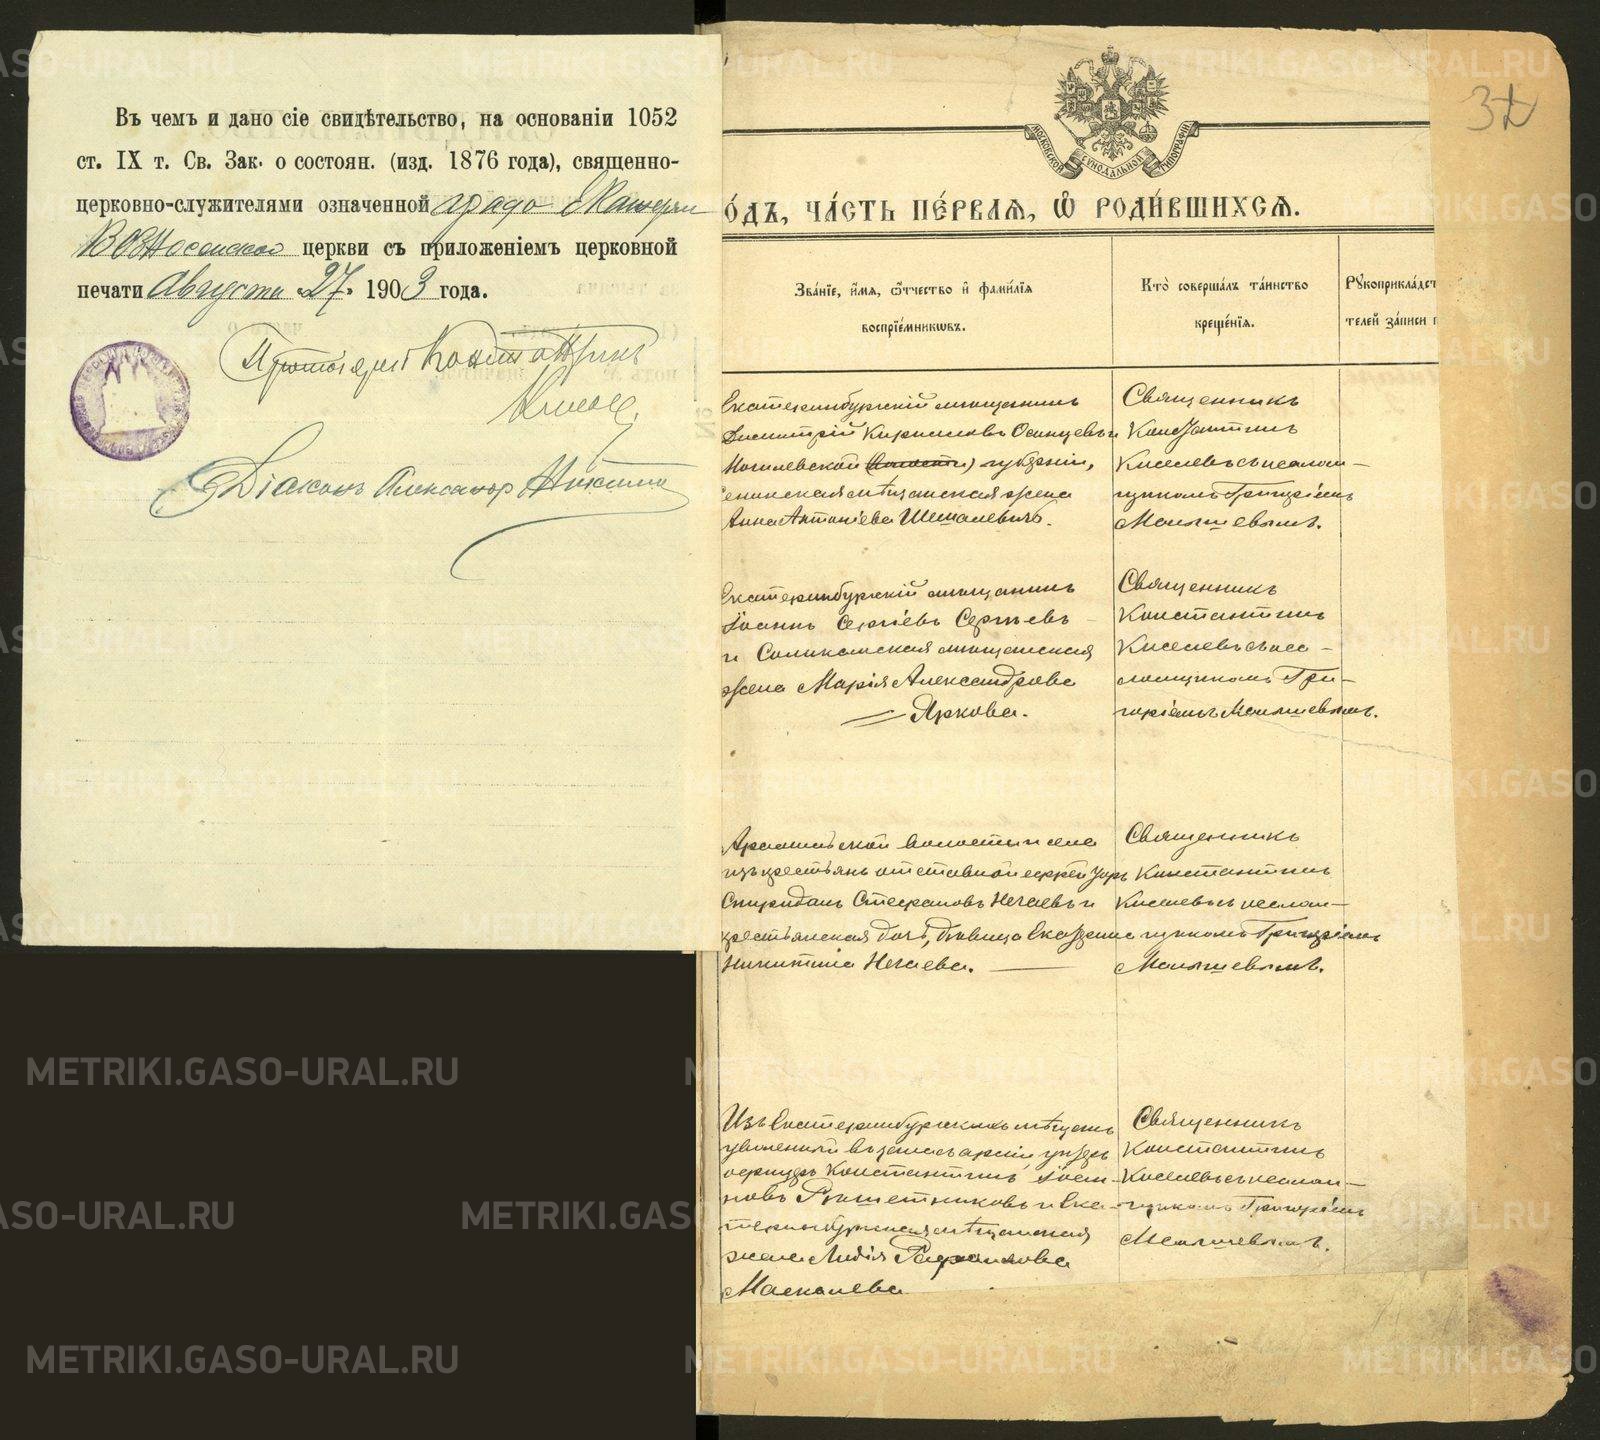 Въ чемъ и дано сіе свидѣтельство, на основаніи 1052
ст. IX т. Св. Зак. о состоян. (изд. 1876 года), священно-
церковно-служителями означенной градо-Екатерин
Вознесенской церкви съ приложеніемъ церковной
печати Августа 27. 1903 года.
Протоіерей Константинъ
Діаконъ Александръ
МОСКОВСКОЙ СѴНОДАЛЬНОЙ ТИПОГРАФІИ
О́ДЪ, ЧА́СТЬ ПЕ́РВАѦ, Ѽ РОДИ́ВШИХСѦ.
Зва́нїе, и́мѧ, ѻ́тчество и҆ фами́лїѧ
воспрїе́мникѡвъ.
Кто̀ соверша́лъ та́инство
креще́нїѧ.
Рꙋкоприкла́дст
телей за́писи п
Екатеринбургскій мещанинъ
Димитрій Кириловъ Осинцевъ и
Могилевской (волости) губерніи,
мѣщанская жена
Анна Антоніева Шемалевичъ.
Священникъ
Константинъ
Киселевъ съ псалом-
щикомъ Григоріемъ
Малышевымъ.
Екатеринбургскій мещанинъ
Іоаннъ Сергіевъ Сергѣевъ
и Соликамская мещанская
жена Марія Александрова
Яркова.
Священникъ
Константинъ
Киселевъ съ пса-
ломщикомъ Гри-
горіемъ Малышевымъ.
Арамильской волости и села
изъ крестьянъ отставной ефрейторъ
Спиридонъ Стефановъ Нечаевъ и
крестьянская дочь, дѣвица
Никитина Нечаева.
Священникъ
Константинъ
Киселевъ съ псалом-
щикомъ Григоріемъ
Малышевымъ.
Изъ Екатеринбургскихъ мѣщанъ
уволенный въ запасъ арміи унтеръ
офицеръ Константинъ Іоан-
новъ Рѣшетниковъ и Ека-
теринбургская мѣщанская
жена Лидія
Маскалева
Священникъ
Константинъ
Киселевъ съ псалом-
щикомъ Григоріемъ
Малышевымъ.
METRIKI.GASO-URAL.RU